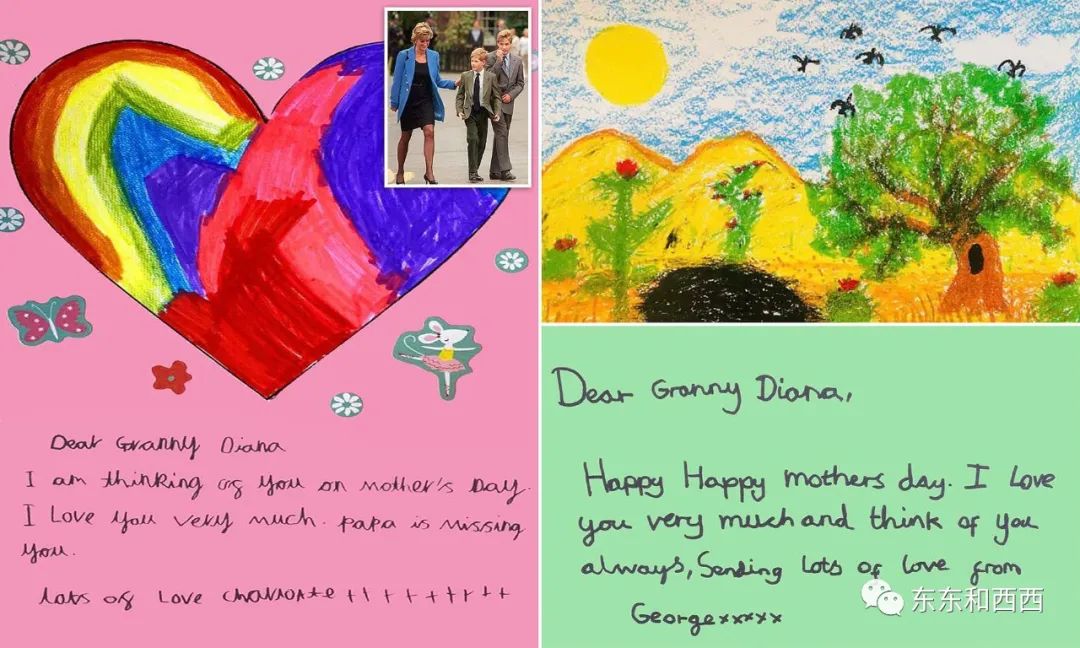 Dear Granny Diana
I am thinking of you on mother's Day.
I Love you very much. papa is missing
you.
lots of Love charlotte +++++++++
Dear Granny Diana,
Happy Happy mothers day. I Love
you very much and think of you
always, Sending lots of love from
Georgexxxxx
东东和西西